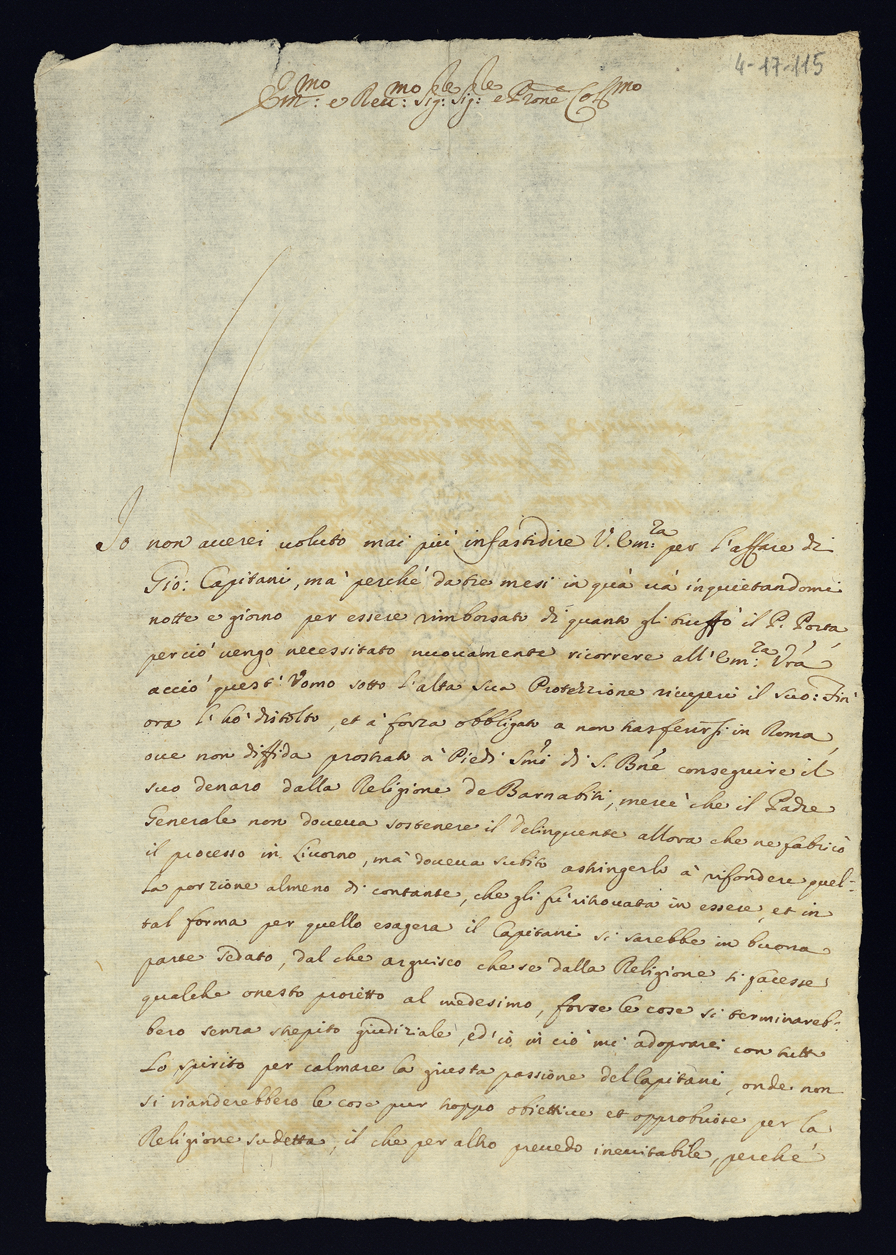 4-17-115
Em:mo e Reu:mo Sig:re Sig:re e Prone Col:mo
Io non auerei uoluto mai più infastidire V. Em:za per l'affare di
Gio: Capitani, mà perché da tre mesi in quà uà inquietandomi
notte e giorno per essere rimborsato di quanto gli truffò il P. Porta
perciò uengo necessitato nuouamente ricorrere all'Em:za Vra
acciò quest'Vomo sotto l'alta sua Protezzione ricuperi il suo: Fin'
ora l'hò distolto, et à forza obbligato a non trasferirsi in Roma,
oue non diffida prostrato à Piedi Smi di S. Bne conseguire il
suo denaro dalla Religione de Barnabiti, mercè che il Padre
Generale non doueua sostenere il delinquente allora che ne fabricò
il processo in Liuorno, mà doueua subito astringerlo à rifondere quel-
la porzione almeno di contante, che gli fù ritrouata in essere, et in
tal forma per quello esagera il Capitani si sarebbe in buona
parte sedato, dal che arguisco che se dalla Religione si facesse
qualche onesto proietto al medesimo, forse le cose si terminareb-
bero senza strepito giudiziale, ed io in ciò mi adoprarei con tutto
Lo spirito per calmare la giusta passione del Capitani, onde non
si renderebbero le cose pur troppo obiettiue et obbrobriose per la
Religione sudetta, il che per altro preuedo ineuitabile, perché